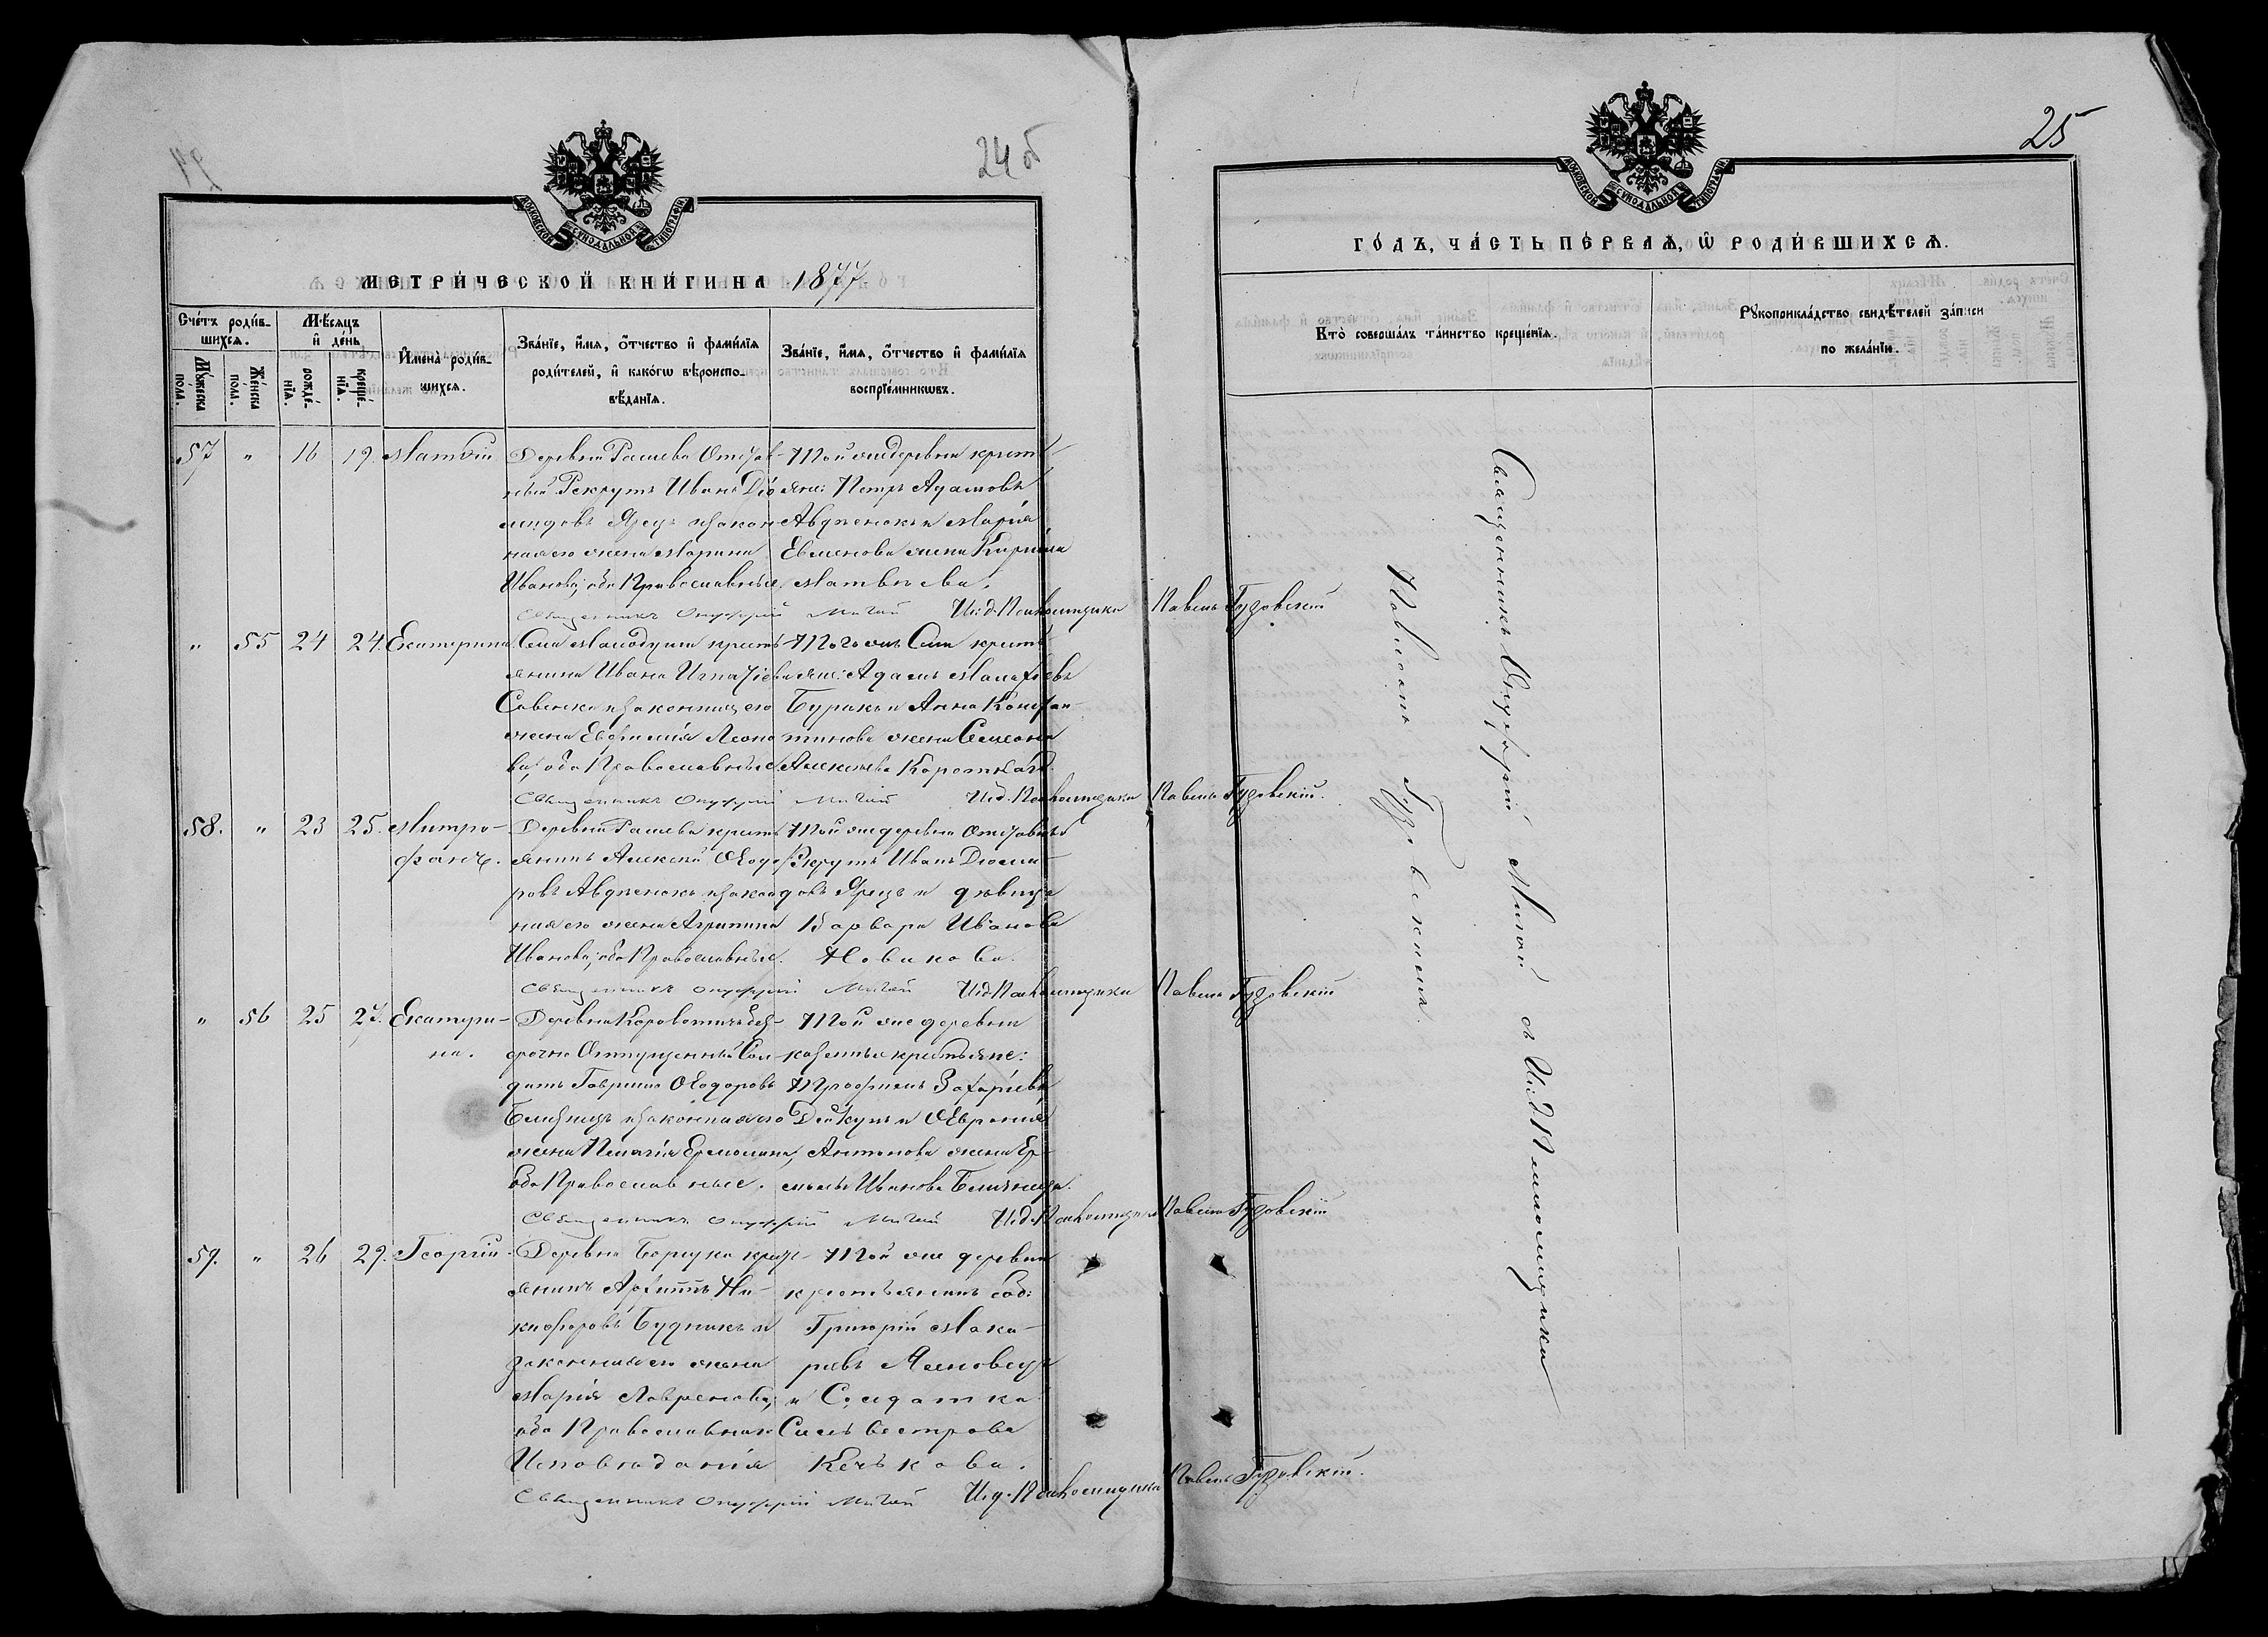 24 об
25
МОСКОВСКОЙ СУНОДАЛЬНОЙ ТИПОГРАФІИ
МЕТРИ́ЧЕСКОЙ КНИ́ГИ НА 1877.
Сче́тъ роди́в-
шихсѧ.
Мѣ́сяцъ
и҆ де́нь
Му́жеска
пола.
Же́нска
пола.
рожде́-
нїѧ.
креще́-
нїѧ.
И҆мена̀ роди́в-
шихсѧ.
Зва́нїе, и҆́мѧ, ѻ҆́тчество и҆ фами́лїѧ
роди́телей, и҆ како́гѡ вѣроиспо-
вѣ́данїѧ.
Зва́нїе, и҆́мѧ, ѻ҆́тчество и҆ фами́лїѧ
воспрїе́мникѡвъ.
57 " 16 19. Матвій
Деревни Рашева Отстав-
ный Рекрутъ Иванъ Діо
мидовъ Ярецъ и закон
ная его жена Марина
Иванова; оба Православные.
Той же деревни крест-
яне: Петръ Адамовъ
Авдѣенокъ и Марія
Евменова жена Кирила
Матвѣева.
Священникъ Онуфрій Мигай И.д. Псаломщика Павелъ Гузовскій
" 55 24 24. Екатерина.
Села Молодуши крестъ
янинъ Иванъ Игнатіевъ
Савенко и законная его
жена Евфимія Леоно
ва; оба Православные.
Того же Села крестъ
яне: Адамъ Малахіевъ
Буракъ и Анна Констан-
тинова жена Семеона
Алексѣева Короткаго.
Священникъ Онуфрій Мигай И.д. Псаломщика Павелъ Гузовскій.
58. " 23 25. Митро-
фанъ.
Деревни Рашева крестъ
янинъ Алексѣй Ѳеодо
ровъ Авдѣенокъ и закон
ная его жена Агрипина
Иванова; оба Православные.
Той же деревни Отставный
Рекрутъ Иванъ Діоми-
довъ Ярецъ и дѣвица
Варвара Иванова
Новикова.
Священникъ Онуфрій Мигай И.д. Псаломщика Павелъ Гузовскій
" 56 25 27. Екатери-
на.
Деревни Короватичъ без-
срочно Отпущенный Сол
датъ Гавріилъ Ѳеодоровъ
Близнецъ и законная его
жена Пелагія Ермолина,
оба Православные.
Той же деревни
казенные крестьяне:
Трофимъ Захаріевъ
Дейкунъ и Ѳевронія
Антонова жена Ер-
молы Иванова Близнеца.
Священникъ Онуфрій Мигай И.д. Псаломщика Павелъ Гузовскій
59. " 26 29. Георгій
Деревни Борщука крест-
янинъ Архиппъ Ни-
кифоровъ Будникъ и
законная его жена
Марія Лавренова;
оба Православнаго
Исповѣданія
Той же деревни
крестьянинъ соб:
Григорій Мака-
ровъ Ясновецъ
и Солдатка
Сильвестрова
Кечькова.
Священникъ Онуфрій Мигай И.д. Псаломщика Павелъ Гузовскій.
ГО́ДЪ, ЧА́СТЬ ПЕ́РВАѦ, Ѡ҆ РОДИ́ВШИХСѦ.
Кто̀ соверша́лъ та́инство креще́нїѧ.
Рꙋкоприкла́дство свидѣ́телей за́писи
по жела́нїю.
Священникъ Онуфрій Мигай съ И.д. Псаломщика
Павломъ Гузовскимъ